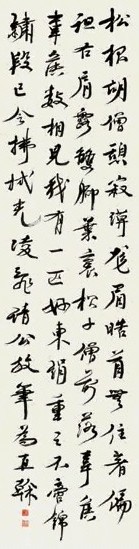 松根胡僧憩寂寞龐眉皓首無住著偏
袒右肩露雙脚葉裏松子僧前落韋侯
韋侯數相見我有一匹好東絹重之不啻錦
繡段已令拂拭光凌亂請公放筆為直幹